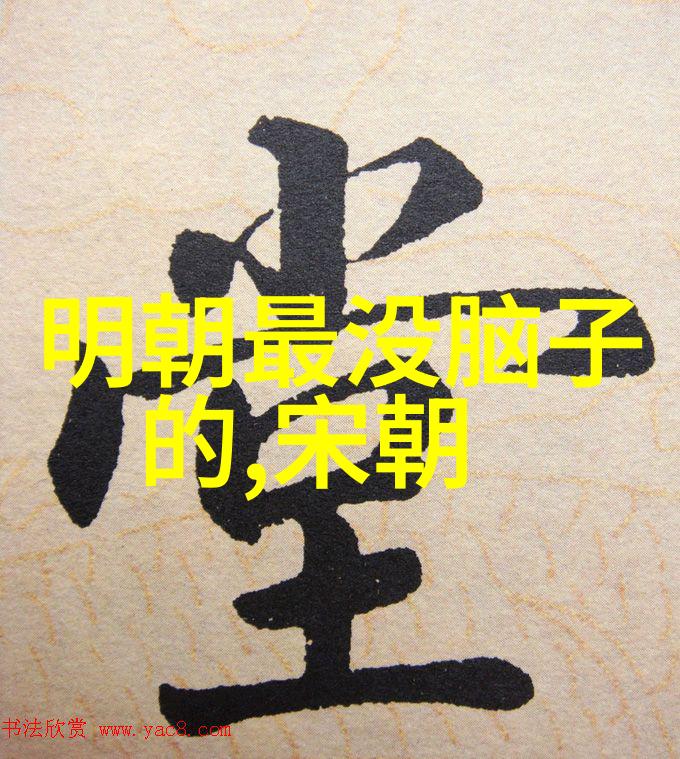 堂
明朝最没脑子
的,宋朝
书法欣赏 www.yac8.com